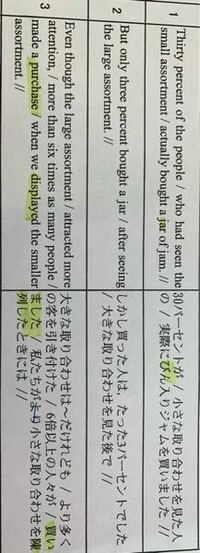 1
Thirty percent of the people / who had seen the
small assortment / actually bought a jar of jam. //
30パーセントが / 小さな取り合わせを見た人
の / 実際にびん入りジャムを買いました //
2
But only three percent bought a jar / after seeing
the large assortment. //
しかし買った人は、たった3パーセントでした
/ 大きな取り合わせを見た後で //
3
Even though the large assortment / attracted more
attention, / more than six times as many people /
made a purchase / when we displayed the smaller
assortment. //
大きな取り合わせは〜だけれども / より多く
の客を引き付けた / 6倍以上の人々が / 買い
ました / 私たちがより小さな取り合わせを陳
列したときには //